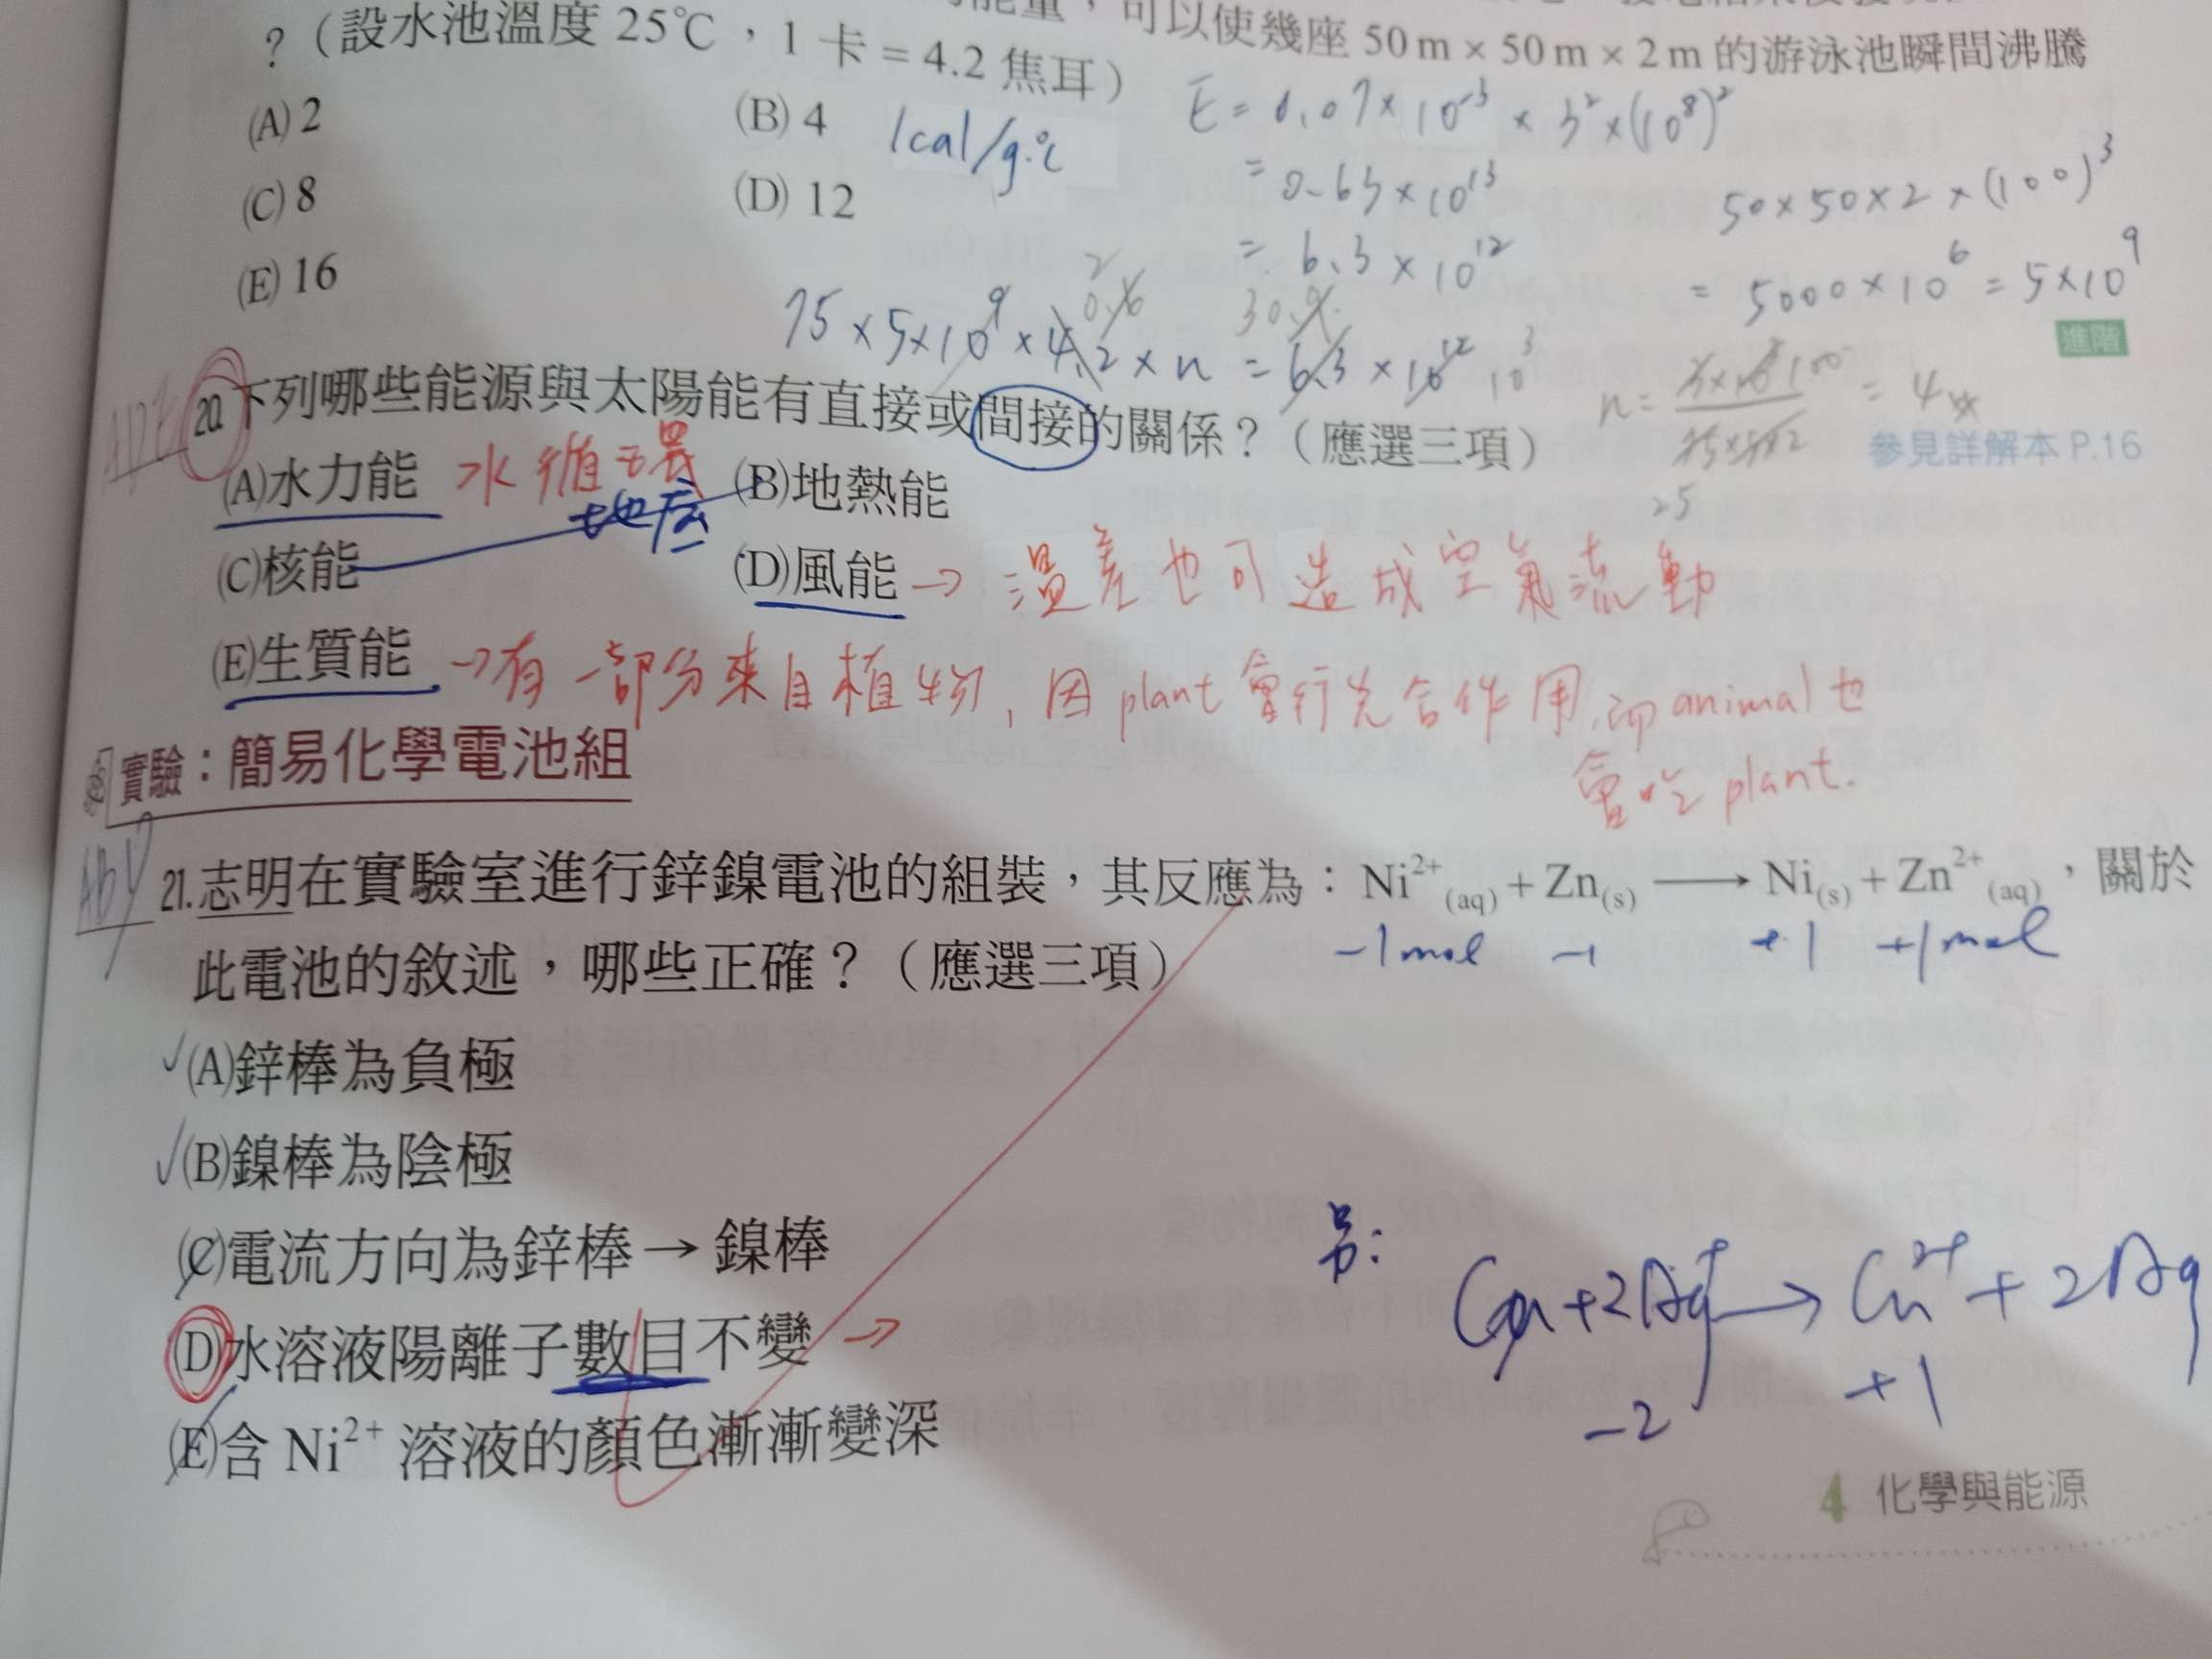 能量，可以使幾座 50 m × 50 m × 2 m 的游泳池瞬間沸騰
？（設水池溫度 25℃，1 卡 = 4.2 焦耳）
E = 0.07 × 10⁻³ × 3² × (10⁸)²
(A) 2
(B) 4
1cal/g·℃
= 0.63 × 10¹³
50×50×2 × (100)³
(C) 8
(D) 12
= 6.3 × 10¹²
= 5000 × 10⁶ = 5×10⁹
(E) 16
75 × 5×10⁹ × 4.2 × n = 6.3 × 10¹²
進階
20.下列哪些能源與太陽能有直接或間接的關係？（應選三項）
參見詳解本 P.16
(A)水力能 水循環
(B)地熱能
地底
25
(C)核能
(D)風能 → 溫差也可造成空氣流動
(E)生質能 → 有一部分來自植物, 因 plant 會行光合作用, 而 animal 也
會吃 plant.
實驗：簡易化學電池組
21.志明在實驗室進行鋅鎳電池的組裝，其反應為：Ni²⁺(aq) + Zn(s) ⟶ Ni(s) + Zn²⁺(aq)，關於
-1mol -1 +1 +1mol
此電池的敘述，哪些正確？（應選三項）
✓(A)鋅棒為負極
✓(B)鎳棒為陰極
(C)電流方向為鋅棒→鎳棒
另:
Cu + 2Ag⁺ → Cu²⁺ + 2Ag
(D)水溶液陽離子數目不變 →
-2 +1
(E)含 Ni²⁺ 溶液的顏色漸漸變深
4 化學與能源